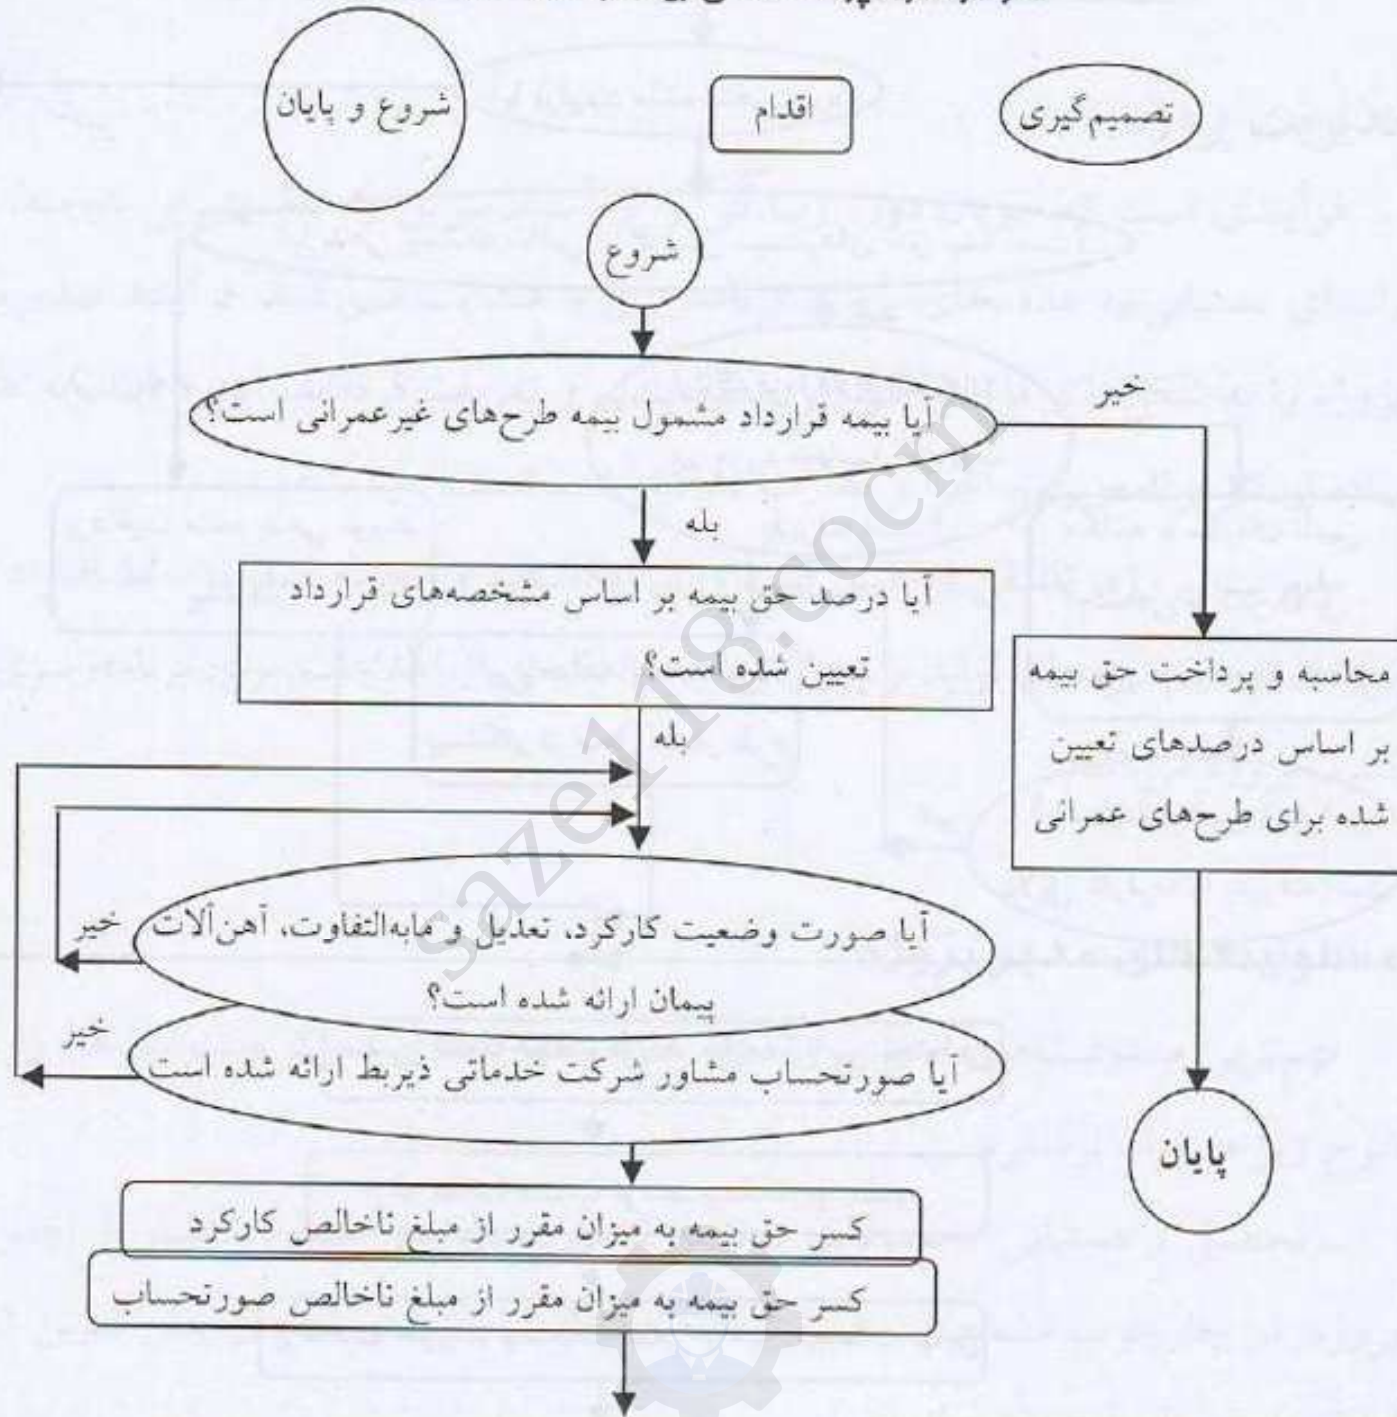 تصمیم‌گیری
اقدام
شروع و پایان
شروع
آیا بیمه قرارداد مشمول بیمه طرح‌های غیرعمرانی است؟
خیر
بله
آیا درصد حق بیمه بر اساس مشخصه‌های قرارداد
تعیین شده است؟
محاسبه و پرداخت حق بیمه
بر اساس درصدهای تعیین
شده برای طرح‌های عمرانی
بله
آیا صورت وضعیت کارکرد، تعدیل و مابه‌التفاوت، آهن‌آلات
پیمان ارائه شده است؟
خیر
آیا صورتحساب مشاور شرکت خدماتی ذیربط ارائه شده است
خیر
پایان
کسر حق بیمه به میزان مقرر از مبلغ ناخالص کارکرد
کسر حق بیمه به میزان مقرر از مبلغ ناخالص صورتحساب
saze118.cocm